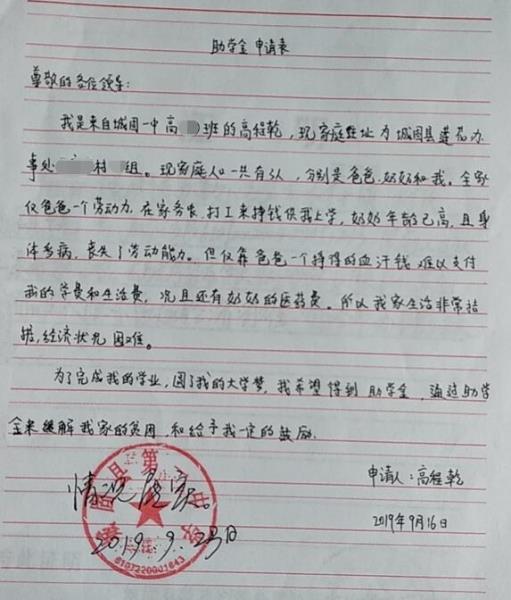 助学金申请表
尊敬的各位领导:
我是来自城固一中高 班的高程乾,现家庭住址为城固县莲花办
事处 村 组。现家庭人口一共有3人,分别是爸爸、奶奶和我。全家
仅爸爸一个劳动力,在家务农,打工来挣钱供我上学,奶奶年龄已高,且身
体多病,丧失了劳动能力。但仅靠爸爸一个挣得的血汗钱难以支付
我的学费和生活费,况且还有奶奶的医药费。所以我家生活非常拮
据,经济状况困难。
为了完成我的学业,圆了我的大学梦,我希望得到助学金,通过助学
金来缓解我家的贫困,和给予我一定的鼓励。
申请人:高程乾
2019年9月16日
情况属实。
2019.9.23日
县第
6107220001643